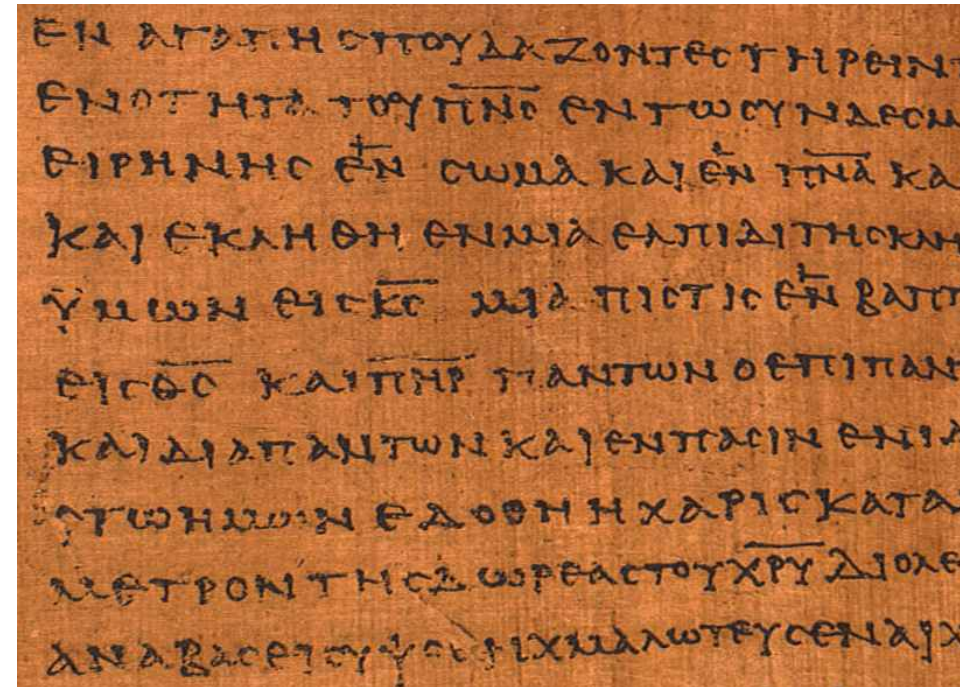 ΕΝ ΑΓΑΠΗ ΣΠΟΥΔΑΖΟΝΤΕΣ ΤΗΡΕΙΝ Τ
ΕΝΟΤΗΤΑ ΤΟΥ Π̅Ν̅Σ̅ ΕΝ ΤΩ ΣΥΝΔΕΣΜ
ΕΙΡΗΝΗΣ ΕΝ ΣΩΜΑ ΚΑΙ ΕΝ Π̅Ν̅Α̅ ΚΑ
ΚΑΙ ΕΚΛΗΘΗ ΕΝ ΜΙΑ ΕΛΠΙΔΙ ΤΗΣ ΚΛΗ
ΫΜΩΝ ΕΙΣ Κ̅Σ̅ ΜΙΑ ΠΙΣΤΙΣ ΕΝ ΒΑΠΤ
ΕΙΣ Θ̅Σ̅ ΚΑΙ Π̅Η̅Ρ̅ ΠΑΝΤΩΝ Ο ΕΠΙ ΠΑΝ
ΚΑΙ ΔΙΑ ΠΑΝΤΩΝ ΚΑΙ ΕΝ ΠΑΣΙΝ ΕΝΙ Δ
ΣΤΩ ΗΜΩΝ ΕΔΟΘΗ Η ΧΑΡΙΣ ΚΑΤΑ
ΜΕΤΡΟΝ ΤΗΣ ΔΩΡΕΑΣ ΤΟΥ Χ̅Ρ̅Υ̅ ΔΙΟ ΛΕ
ΑΝΑΒΑΣ ΕΙΣ ΗΧΜΑΛΩΤΕΥΣΕΝ ΑΙΧ